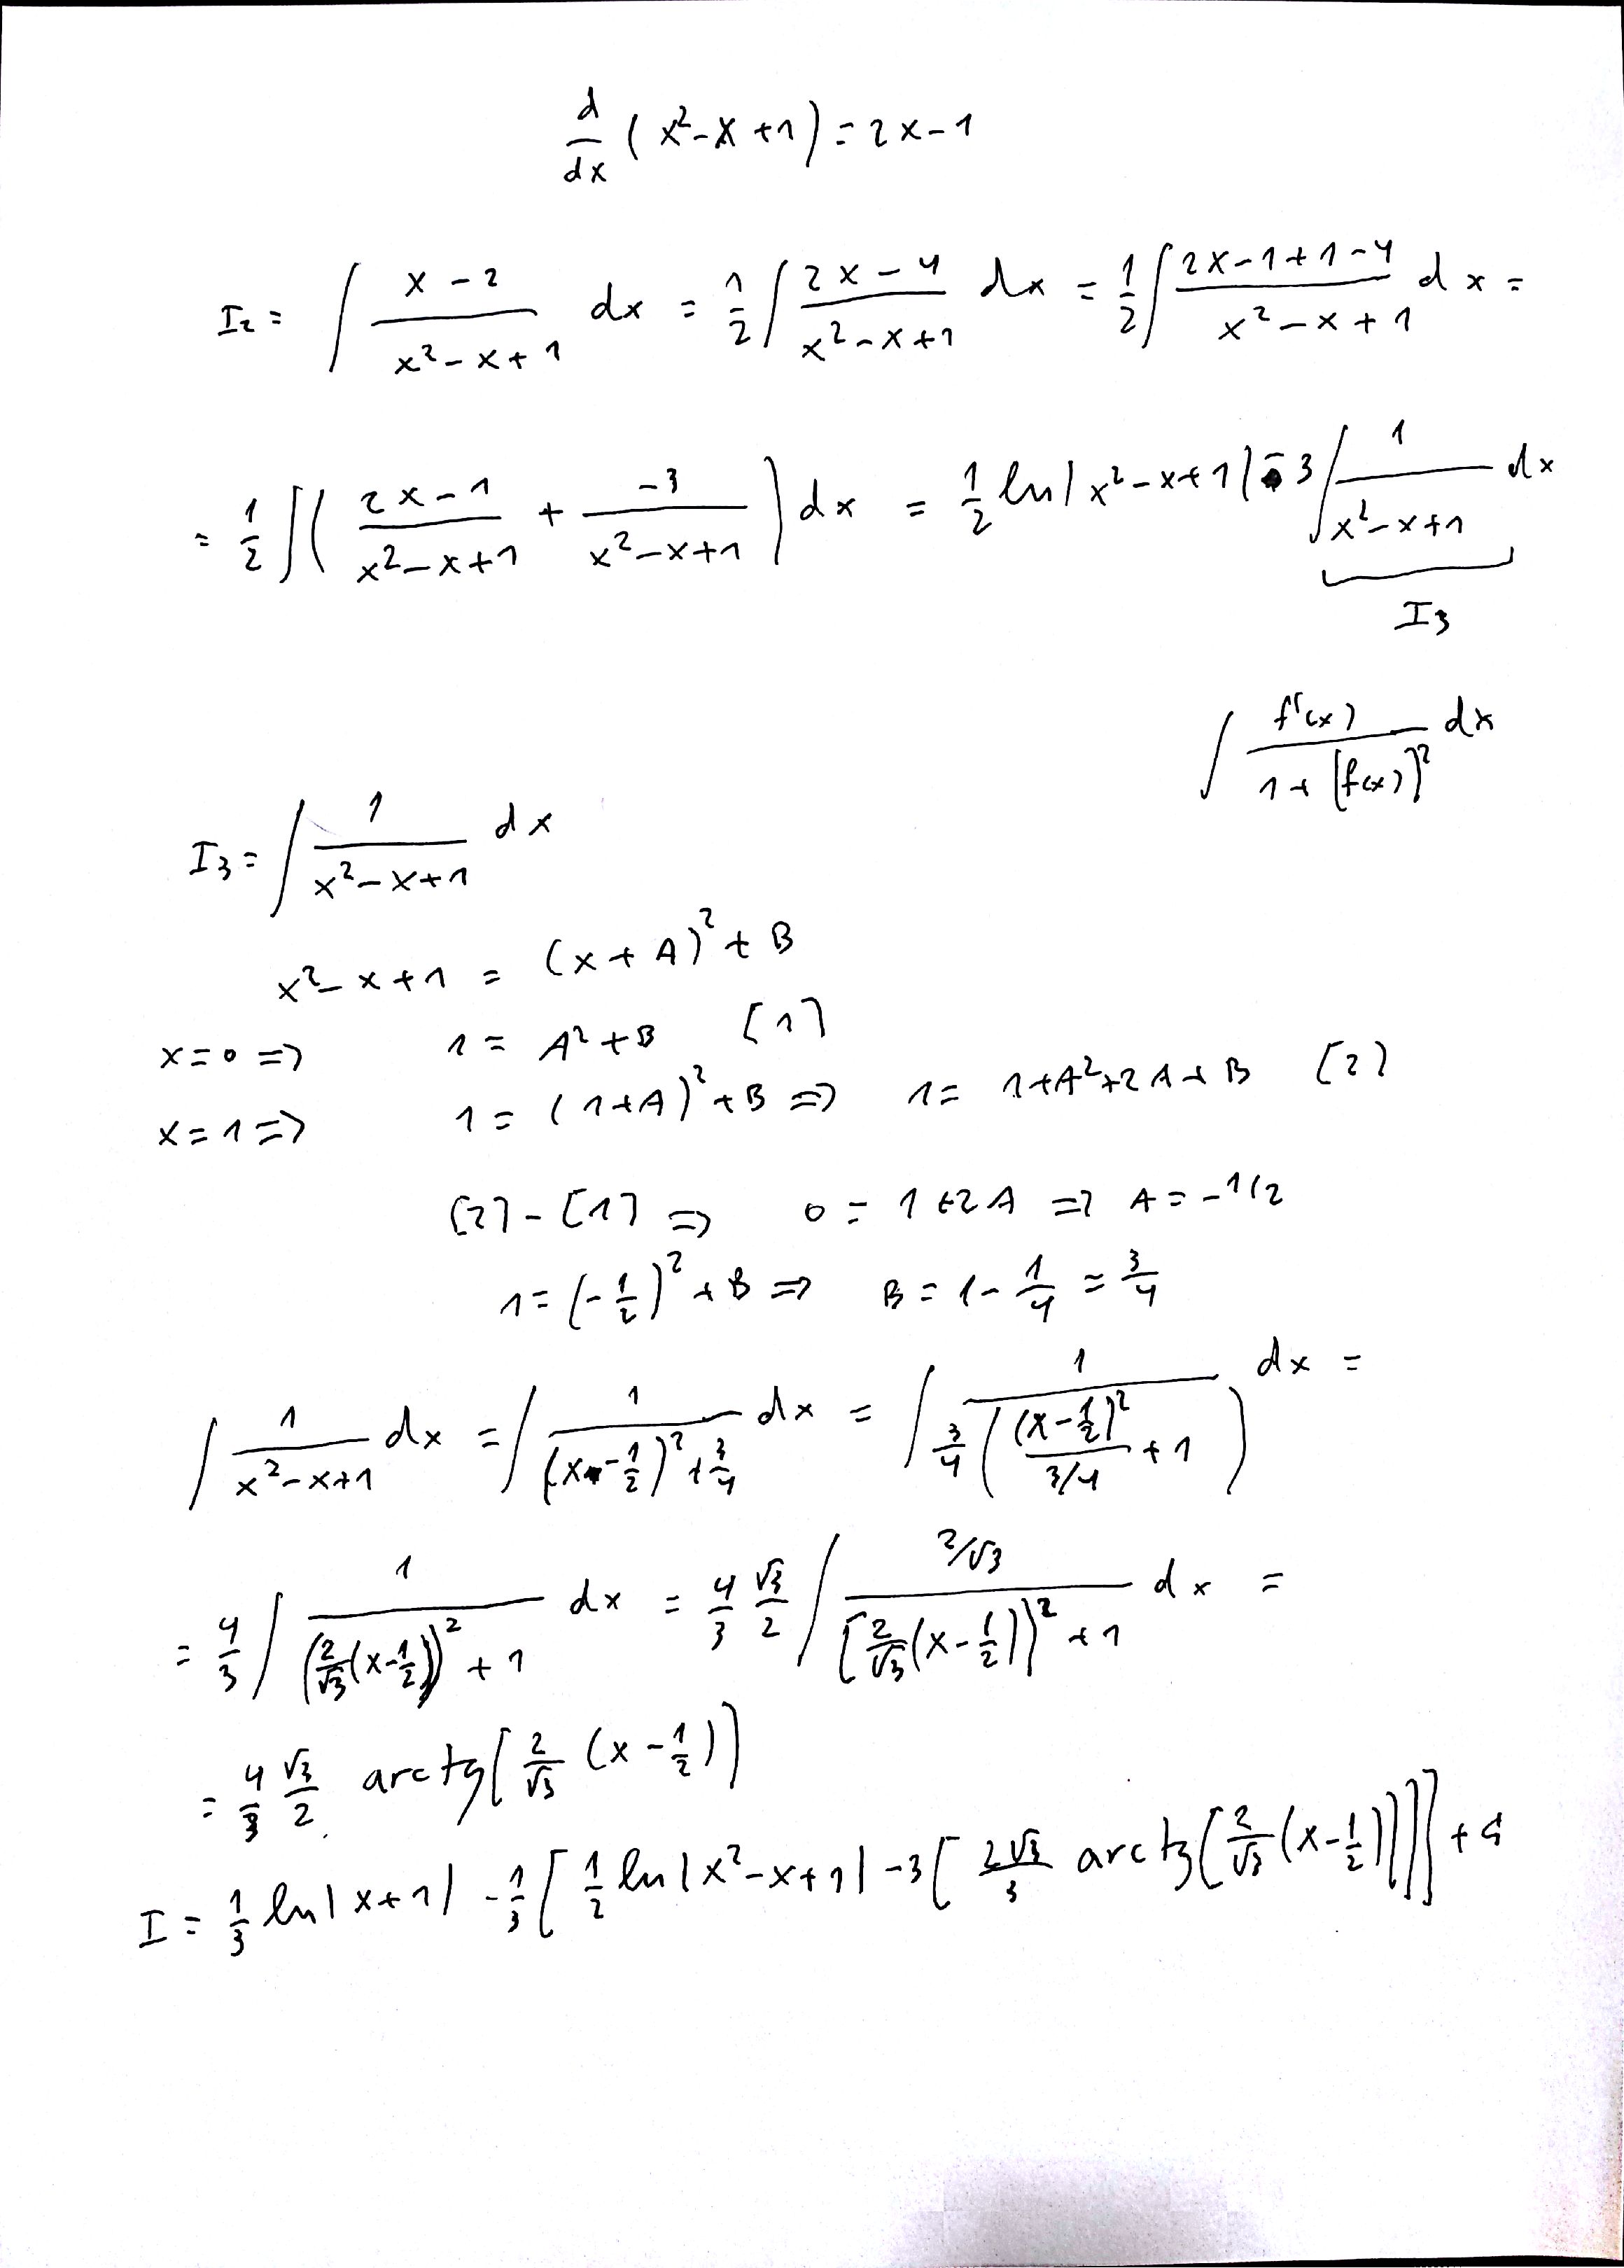 d/dx (x²-x+1) = 2x-1
I₂ = ∫ (x-2)/(x²-x+1) dx = 1/2 ∫ (2x-4)/(x²-x+1) dx = 1/2 ∫ (2x-1+1-4)/(x²-x+1) dx =
= 1/2 ∫ ( (2x-1)/(x²-x+1) + (-3)/(x²-x+1) ) dx = 1/2 ln|x²-x+1| - 3 ∫ 1/(x²-x+1) dx
I₃
∫ f'(x)/(1+[f(x)]²) dx
I₃ = ∫ 1/(x²-x+1) dx
x²-x+1 = (x+A)²+B
x=0 => 1 = A²+B [1]
x=1 => 1 = (1+A)²+B => 1 = 1+A²+2A+B [2]
[2]-[1] => 0 = 1+2A => A = -1/2
1 = (-1/2)²+B => B = 1-1/4 = 3/4
∫ 1/(x²-x+1) dx = ∫ 1/((x-1/2)²+3/4) dx = ∫ 1/(3/4 ((x-1/2)²/(3/4) + 1)) dx =
= 4/3 ∫ 1/((2/√3(x-1/2))²+1) dx = 4/3 √3/2 ∫ (2/√3)/([2/√3(x-1/2)]²+1) dx =
= 4/3 √3/2 arctg[2/√3 (x-1/2)]
I = 1/3 ln|x+1| - 1/3 [1/2 ln|x²-x+1| - 3[2√3/3 arctg[2/√3(x-1/2)]]] +